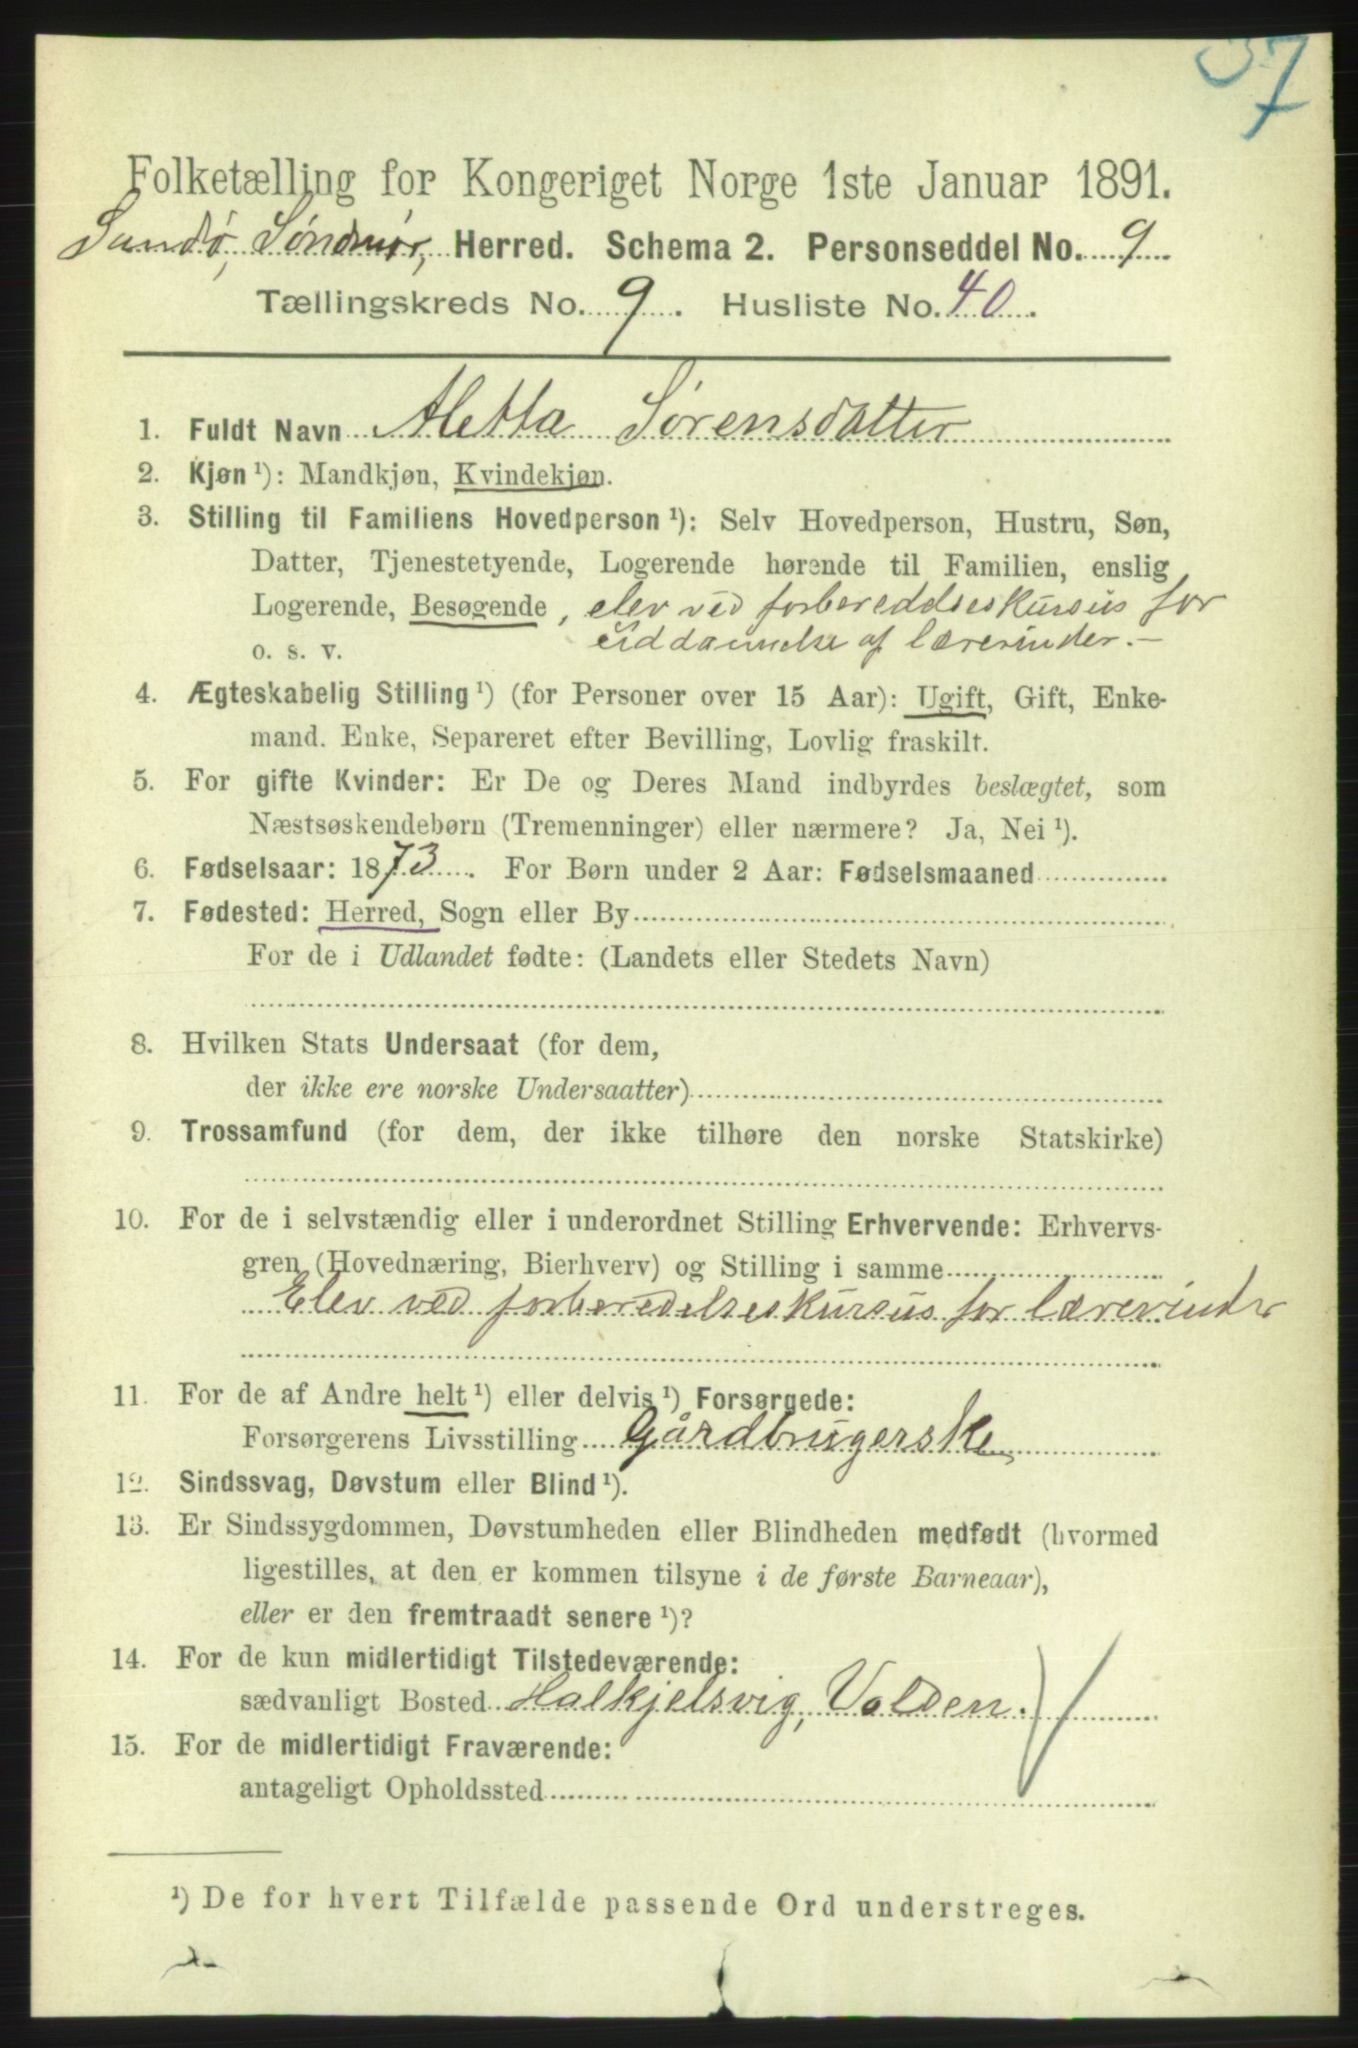 37
Folketælling for Kongeriget Norge 1ste Januar 1891.
Sandø, Søndmør, Herred. Schema 2. Personseddel No. 9
Tællingskreds No. 9. Husliste No. 40.
1. Fuldt Navn Aletta Sørensdatter
2. Kjøn ¹): Mandkjøn, Kvindekjøn.
3. Stilling til Familiens Hovedperson ¹): Selv Hovedperson, Hustru, Søn,
Datter, Tjenestetyende, Logerende hørende til Familien, enslig
Logerende, Besøgende, elev ved forberedelseskursus for
o. s. v. uddannelse af lærerinder.-
4. Ægteskabelig Stilling ¹) (for Personer over 15 Aar): Ugift, Gift, Enke-
mand. Enke, Separeret efter Bevilling, Lovlig fraskilt.
5. For gifte Kvinder: Er De og Deres Mand indbyrdes beslægtet, som
Næstsøskendebørn (Tremenninger) eller nærmere? Ja, Nei ¹).
6. Fødselsaar: 1873. For Børn under 2 Aar: Fødselsmaaned
7. Fødested: Herred, Sogn eller By
For de i Udlandet fødte: (Landets eller Stedets Navn)
8. Hvilken Stats Undersaat (for dem,
der ikke ere norske Undersaatter)
9. Trossamfund (for dem, der ikke tilhøre den norske Statskirke)
10. For de i selvstændig eller i underordnet Stilling Erhvervende: Erhvervs-
gren (Hovednæring, Bierhverv) og Stilling i samme
Elev ved forberedelseskursus for lærerinder
11. For de af Andre helt ¹) eller delvis ¹) Forsørgede:
Forsørgerens Livsstilling Gårdbrugerske
12. Sindssvag, Døvstum eller Blind ¹).
13. Er Sindssygdommen, Døvstumheden eller Blindheden medfødt (hvormed
ligestilles, at den er kommen tilsyne i de første Barneaar),
eller er den fremtraadt senere ¹)?
14. For de kun midlertidigt Tilstedeværende:
sædvanligt Bosted Halkjelsvig, Volden.
15. For de midlertidigt Fraværende:
antageligt Opholdssted
¹) De for hvert Tilfælde passende Ord understreges.